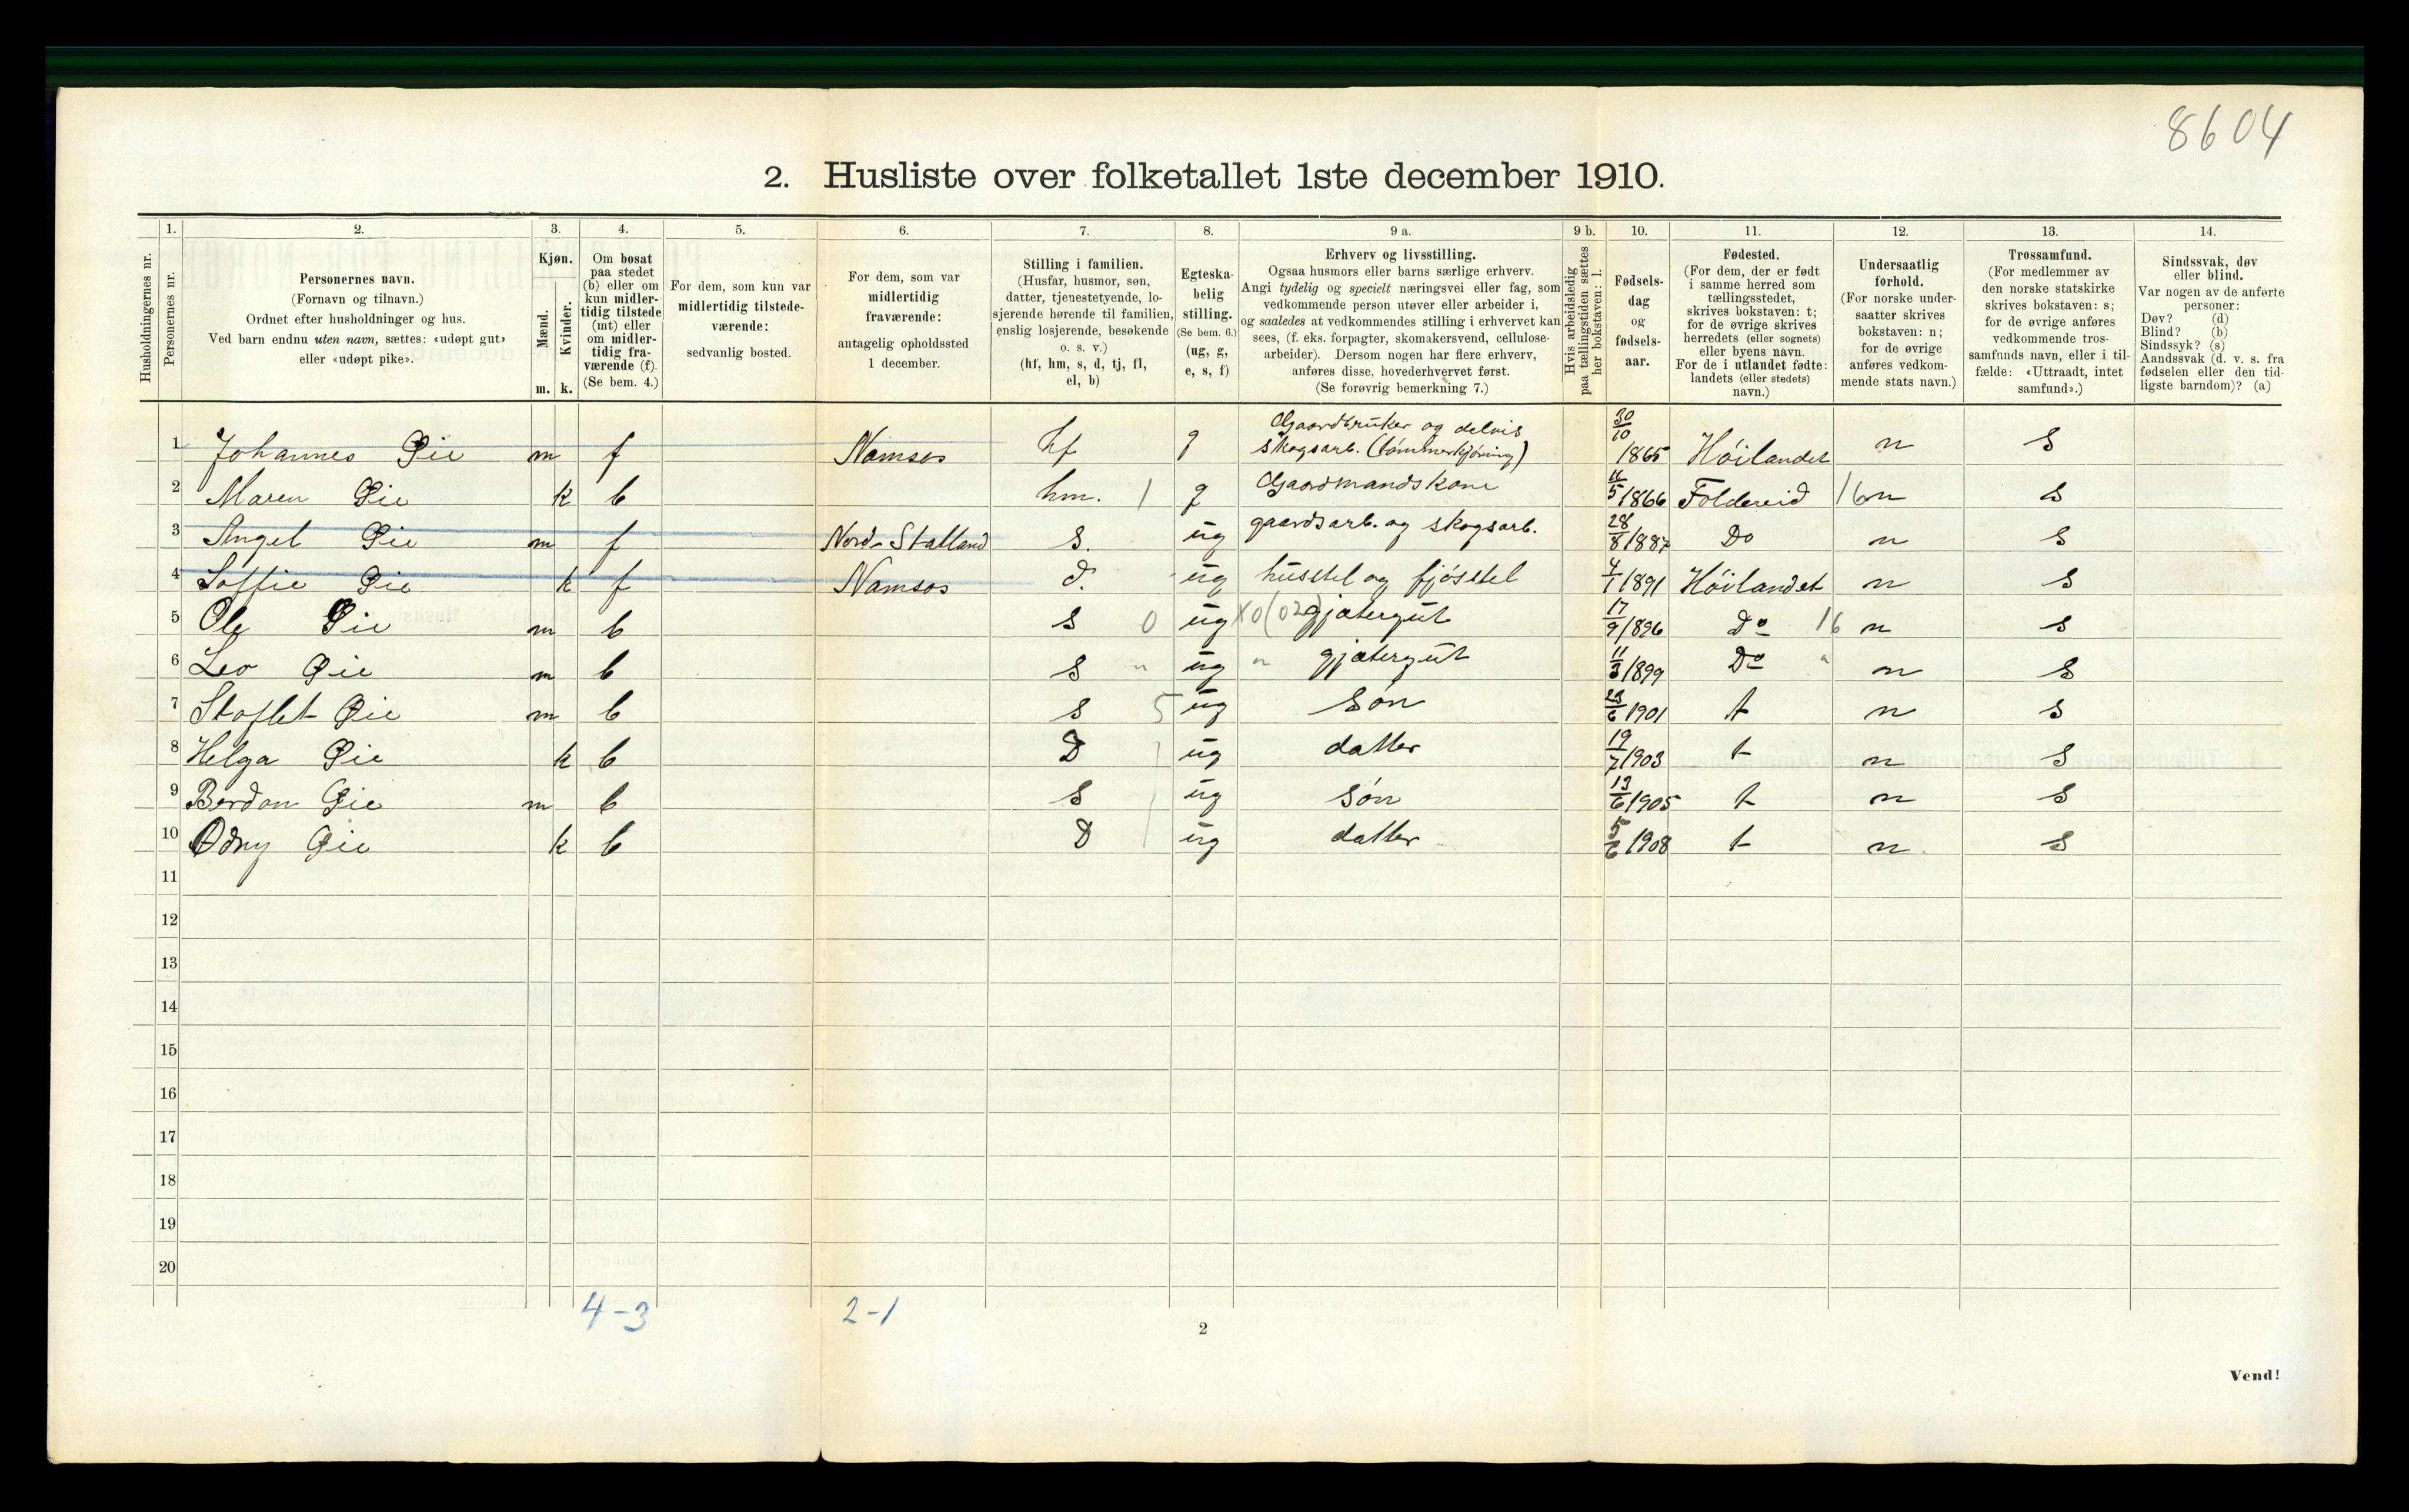 8604
2. Husliste over folketallet 1ste december 1910.
Husholdningernes nr.
1.
Personernes nr.
2.
Personernes navn.
(Fornavn og tilnavn.)
Ordnet efter husholdninger og hus.
Ved barn endnu uten navn, sættes: «udøpt gut»
eller «udøpt pike».
3.
Kjøn.
Mænd.
Kvinder.
m. k.
4.
Om bosat
paa stedet
(b) eller om
kun midler-
tidig tilstede
(mt) eller
om midler-
tidig fra-
værende (f).
(Se bem. 4.)
5.
For dem, som kun var
midlertidig tilstede-
værende:
sedvanlig bosted.
6.
For dem, som var
midlertidig
fraværende:
antagelig opholdssted
1 december.
7.
Stilling i familien.
(Husfar, husmor, søn,
datter, tjenestetyende, lo-
sjerende hørende til familien,
enslig losjerende, besøkende
o. s. v.)
(hf, hm, s, d, tj, fl,
el, b)
8.
Egteska-
belig
stilling.
(Se bem. 6.)
(ug, g,
e, s, f)
9 a.
Erhverv og livsstilling.
Ogsaa husmors eller barns særlige erhverv.
Angi tydelig og specielt næringsvei eller fag, som
vedkommende person utøver eller arbeider i,
og saaledes at vedkommendes stilling i erhvervet kan
sees, (f. eks. forpagter, skomakersvend, cellulose-
arbeider). Dersom nogen har flere erhverv,
anføres disse, hovederhvervet først.
(Se forøvrig bemerkning 7.)
9 b.
Hvis arbeidsledig
paa tællingstiden sættes
her bokstaven: l.
10.
Fødsels-
dag
og
fødsels-
aar.
11.
Fødested.
(For dem, der er født
i samme herred som
tællingsstedet,
skrives bokstaven: t;
for de øvrige skrives
herredets (eller sognets)
eller byens navn.
For de i utlandet fødte:
landets (eller stedets)
navn.)
12.
Undersaatlig
forhold.
(For norske under-
saatter skrives
bokstaven: n;
for de øvrige
anføres vedkom-
mende stats navn.)
13.
Trossamfund.
(For medlemmer av
den norske statskirke
skrives bokstaven: s;
for de øvrige anføres
vedkommende tros-
samfunds navn, eller i til-
fælde: «Uttraadt, intet
samfund».)
14.
Sindssvak, døv
eller blind.
Var nogen av de anførte
personer:
Døv? (d)
Blind? (b)
Sindssyk? (s)
Aandssvak (d. v. s. fra
fødselen eller den tid-
ligste barndom)? (a)
1 Johannes Øie m f Namsos hf g Gaardbruker og delvis skogsarb. (tømmerkjøring) 30/10 1865 Høilandet n S
2 Maren Øie k b hm. 1 g Gaardmandskone 16/5 1866 Foldereid 16 n S
3 Angel Øie m f Nord-Statland S. ug gaardsarb. og skogsarb. 28/8 1887 Do n S
4 Soffie Øie k f Namsos d. ug husstel og fjøsstel 4/1 1891 Høilandet n S
5 Ole Øie m b S 0 ug gjætergut 17/9 1896 Do 16 n S
6 Leo Øie m b S " ug " gjætergut 11/3 1899 Do " n S
7 Stoflet Øie m b S 5 ug Søn 23/6 1901 t n S
8 Helga Øie k b D ug datter 19/7 1903 t n S
9 Berdon Øie m b S ug Søn 13/6 1905 t n S
10 Odny Øie k b D ug datter 5/6 1908 t n S
11
12
13
14
15
16
17
18
19
20
4-3 2-1
2
Vend!